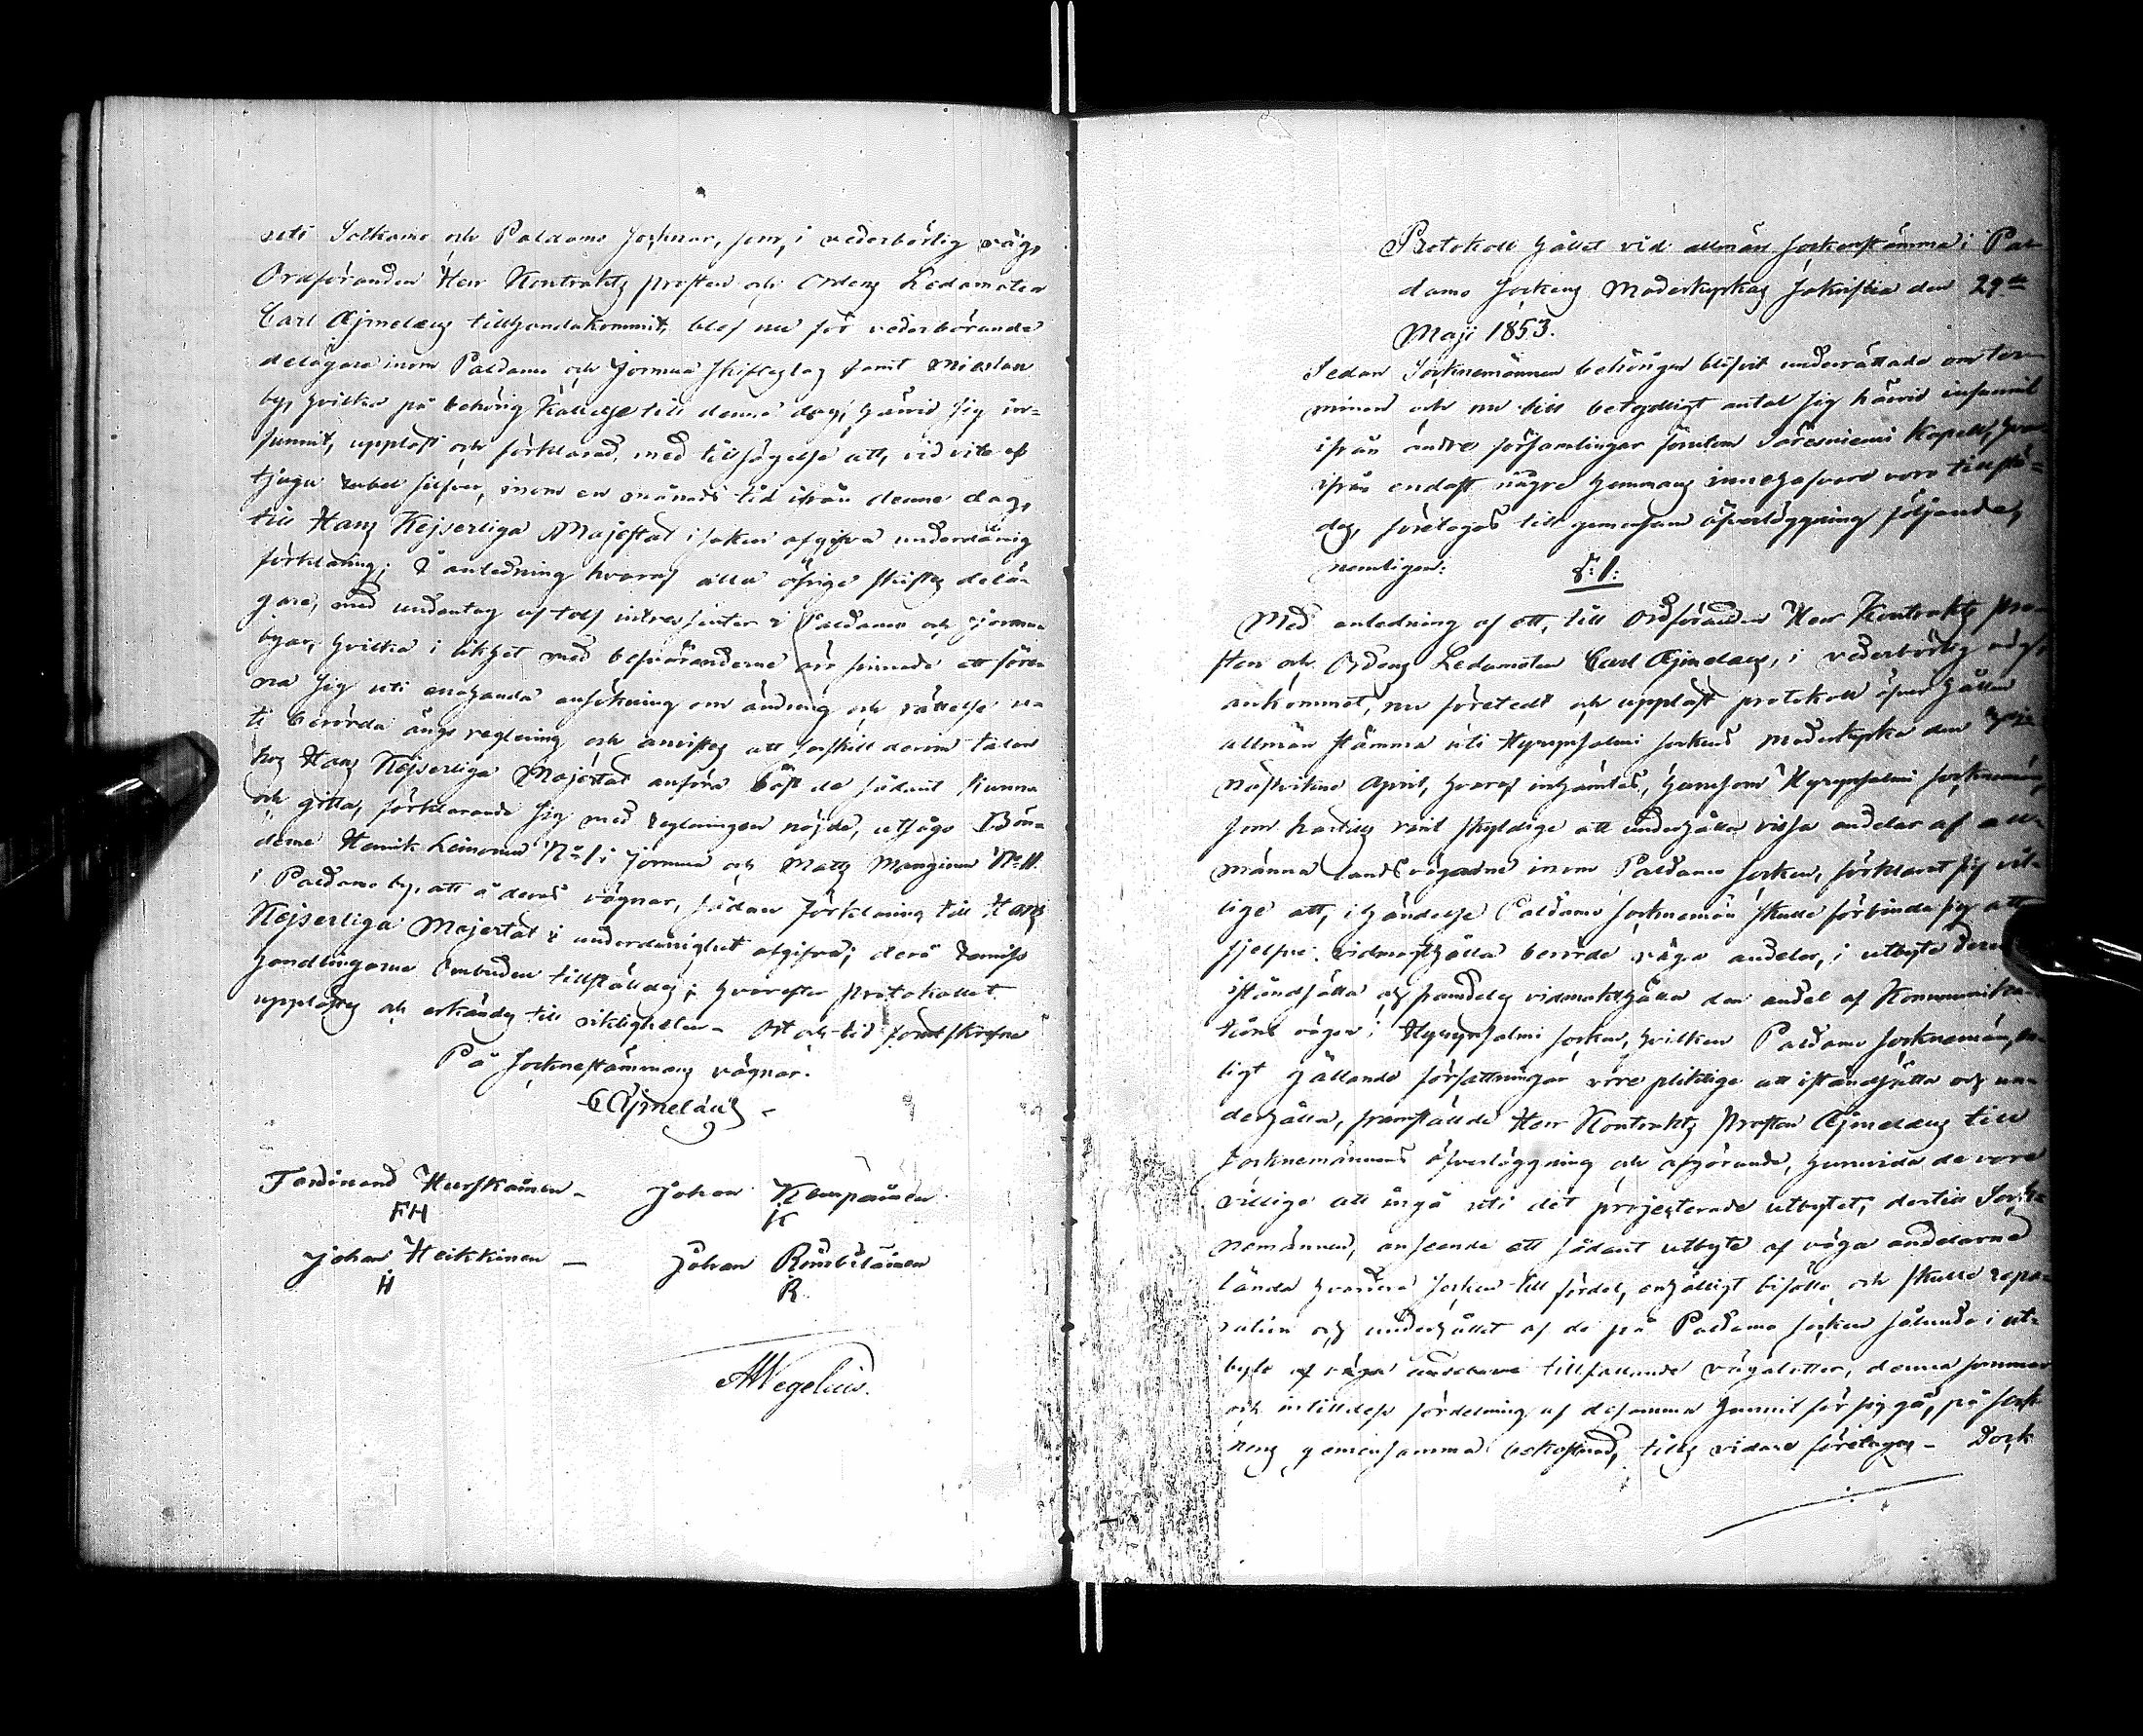 uti Sotkamo och Paldamo Socknar, som, i vederbörlig väg,
Ordföranden Herr Kontrakts prosten och Ordens Ledamoten
Carl Ajmelæus tillhandakommit, blef nu för vederbörande
delägare inom Paldamo och Jormua skifteslag samt Mieslax
by, hvilka på behörig kallelse till denne dag, härvid sig in-
funnit, uppläst och förklarad, med tillsägelse att, vid vite af
tjugu rubel silfver, inom en månads tid ifrån denne dag,
till Hans Kejserliga Majestät i saken afgifva underdånig
förklaring; I anledning hvaraf alla öfrige skiftes delä-
gare, med undantag af tolf intressenter i Paldamo och Jormua
byar, hvilka i likhet med besväranderne äro sinnade att före-
na sig uti enahanda ansökning om ändring och rättelse u-
ti berörda ängs reglering och anvistes att särskilt derom talan
hos Hans Kejserliga Majestät anföra bäst de sådant kunna
och gitta, förklarande sig med regleringen nöjde, utsågo Bön-
derne Henrik Leinonen N:o 1 i Jormua och Matts Manginen N:o 11
i Paldamo by, att å deras vägnar, sådan förklaring till Hans
Kejserliga Majestät i underdånighet afgifva; derå remiss
handlingarne Ombuden tillställdes; hvarefter protokollet
upplästes och erkändes till riktigheten. Ort och tid förutskrefne
På Socknestämmans vägnar.
C Ajmelæus
Ferdinand Hurskainen - Johan Kemppainen
FH K
Johan Heikkinen - Johan Römbiläinen
H R
AWegelius.
Protokoll hållet vid allmän Sockenstämma i Pal-
damo Sockens Moderkyrkas Sakristia den 29de
Maji 1853.
Sedan Socknemännen behörigen blifvit underrättade om ter-
minen och nu till betydligt antal sig härvid infunnit
ifrån andre församlingar förutom Säresniemi Kapell, hvar-
ifrån endast någre hemmans innehafvare voro tillstä-
des, företogos till gemensam öfverläggning följande,
nemligen:
§: 1:
Med anledning af ett, till Ordföranden Herr Kontrakts pro-
sten och Ordens Ledamoten Carl Ajmelæus, i vederbörlig väg,
ankommet, nu företedt och uppläst protokoll öfver hållen
allmän stämma uti Hyrynsalmi Sockens moderkyrka den
nästvikne April, hvaraf inhämtas, hurusom Hyrynsalmi Socknemän,
som hartills varit skyldige att underhålla vissa andelar af all-
männa landsvägarne inom Paldamo Socken, förklarat sig vil-
lige att, i händelse Paldamo Socknemän skulle förbinda sig att
sjelfve vidmagthålla berörde väga andelar, i utbyte
iståndsätta och framdeles vidmakthålla den andel af Kommunika-
tions vägen i Hyrynsalmi Socken, hvilken Paldamo Socknemän, en-
ligt gällande författningar vore pliktige att iståndsätta och un-
derhålla, framställde Herr Kontrakts Prosten Ajmelæus till
Socknemännens öfverläggning och afgörande, huruvida de vore
villige att ingå uti det projecterade utbytet, dertill Sock-
nemännen, anseende ett sådant utbyte af väga andelarne
lända hvardera Socken till fördel, enhälligt biföllo, och skulle repa-
ration och underhållet af de på Paldamo Socken sålunde i ut-
byte af väga andelarne tillfallande vägalotter, denna sommar
och intilldess fördelning af desamma hunnit för sig gå, på Sock-
nens gemensamma bekostnad, tills vidare företagas - Dock